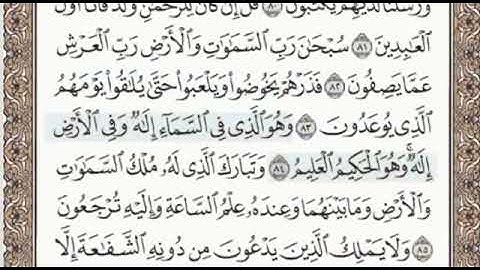 وَرُسُلُنَا لَدَيْهِمْ يَكْتُبُونَ ٨٠ قُلْ إِن كَانَ لِلرَّحْمَٰنِ وَلَدٌ فَأَنَا۠ أَوَّلُ
ٱلْعَٰبِدِينَ ٨١ سُبْحَٰنَ رَبِّ ٱلسَّمَٰوَٰتِ وَٱلْأَرْضِ رَبِّ ٱلْعَرْشِ
عَمَّا يَصِفُونَ ٨٢ فَذَرْهُمْ يَخُوضُوا۟ وَيَلْعَبُوا۟ حَتَّىٰ يُلَٰقُوا۟ يَوْمَهُمُ
ٱلَّذِى يُوعَدُونَ ٨٣ وَهُوَ ٱلَّذِى فِى ٱلسَّمَآءِ إِلَٰهٌ وَفِى ٱلْأَرْضِ
إِلَٰهٌ ۚ وَهُوَ ٱلْحَكِيمُ ٱلْعَلِيمُ ٨٤ وَتَبَارَكَ ٱلَّذِى لَهُۥ مُلْكُ ٱلسَّمَٰوَٰتِ
وَٱلْأَرْضِ وَمَا بَيْنَهُمَا وَعِندَهُۥ عِلْمُ ٱلسَّاعَةِ وَإِلَيْهِ تُرْجَعُونَ
٨٥ وَلَا يَمْلِكُ ٱلَّذِينَ يَدْعُونَ مِن دُونِهِ ٱلشَّفَٰعَةَ إِلَّا